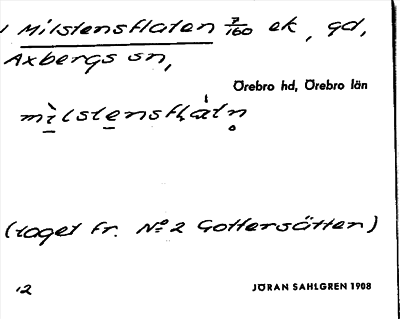 Milstensflaten 7/160 ek, gd,
Axbergs sn,
Örebro hd, Örebro län
mìlstensflàtn̥
(taget fr. No 2 Gottersätten)
12
JÖRAN SAHLGREN 1908